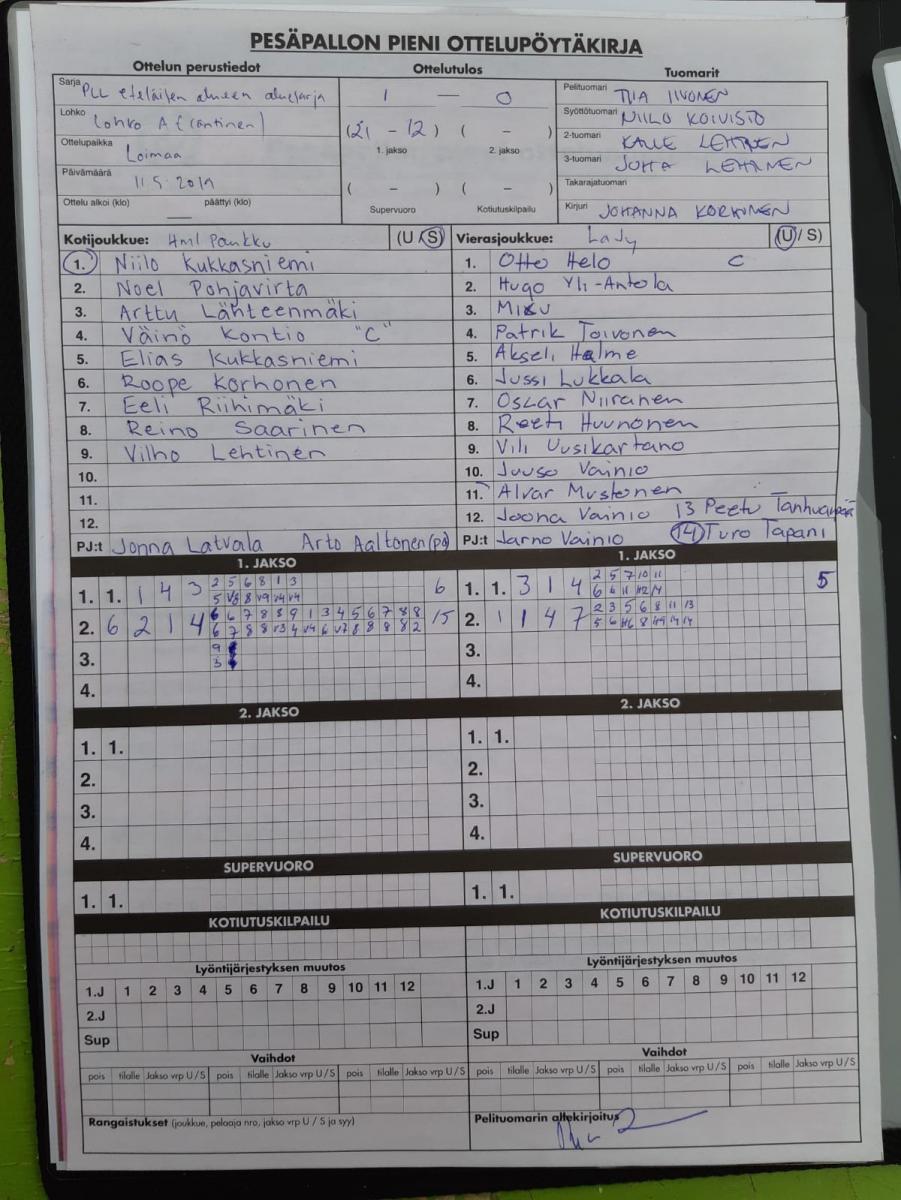 PESÄPALLON PIENI OTTELUPÖYTÄKIRJA
Ottelun perustiedot Ottelutulos Tuomarit
Sarja PLL eteläisen alueen aluesarja
Lohko Lohko A (läntinen)
Ottelupaikka Loimaa
Päivämäärä 11.5.2019
Ottelu alkoi (klo) — päättyi (klo)
1 — 0
(21 - 12) ( - )
1. jakso 2. jakso
( - ) ( - )
Supervuoro Kotiutuskilpailu
Pelituomari TIIA IIVONEN
Syöttötuomari NIILO KOIVISTO
2-tuomari KALLE LEHTINEN
3-tuomari JUHA LEHTINEN
Takarajatuomari
Kirjuri JOHANNA KORHONEN
Kotijoukkue: Hml Pankku (U / S)
1. Niilo Kukkasniemi
2. Noel Pohjavirta
3. Arttu Lähteenmäki
4. Väinö Kontio "C"
5. Elias Kukkasniemi
6. Roope Korhonen
7. Eeli Riihimäki
8. Reino Saarinen
9. Vilho Lehtinen
10.
11.
12.
PJ:t Jonna Latvala Arto Aaltonen (pj)
Vierasjoukkue: LaJy (U / S)
1. Otto Helo C
2. Hugo Yli-Antola
3. Miku
4. Patrik Toivonen
5. Akseli Halme
6. Jussi Lukkala
7. Oscar Niiranen
8. Reeti Huunonen
9. Vili Uusikartano
10. Juuso Vainio
11. Alvar Mustonen
12. Joona Vainio 13 Peetu
14 Turo Tapani
PJ:t Jarno Vainio
1. JAKSO
1. 1. 1 4 3 2 5 6 8 1 3 6
2. 6 2 1 4 6 6 7 8 8 9 1 3 4 5 6 7 8 8 15
3. 9
3
4.
1. JAKSO
1. 1. 3 1 4 2 5 7 10 11 5
2. 1 1 4 7 2 3 5 6 8 11 13
3.
4.
2. JAKSO
1. 1.
2.
3.
4.
2. JAKSO
1. 1.
2.
3.
4.
SUPERVUORO
1. 1.
SUPERVUORO
1. 1.
KOTIUTUSKILPAILU
KOTIUTUSKILPAILU
Lyöntijärjestyksen muutos
1.J 1 2 3 4 5 6 7 8 9 10 11 12
2.J
Sup
Lyöntijärjestyksen muutos
1.J 1 2 3 4 5 6 7 8 9 10 11 12
2.J
Sup
Vaihdot
pois tilalle Jakso vrp U / S pois tilalle Jakso vrp U / S pois tilalle Jakso vrp U / S
Vaihdot
pois tilalle Jakso vrp U / S pois tilalle Jakso vrp U / S pois tilalle Jakso vrp U / S
Rangaistukset (joukkue, pelaaja nro, jakso vrp U / S ja syy)
Pelituomarin allekirjoitus